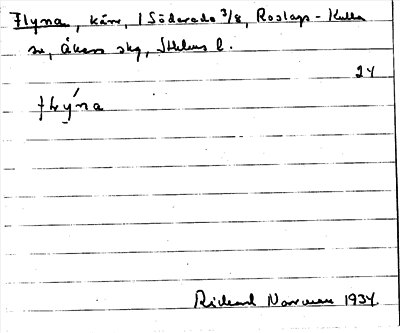 Flyna, kärr, 1 Söderada 3/8, Roslags-Kulla
sn, Åkers skg, Sthlms l.
24
flýna
Rickard Norrman 1934